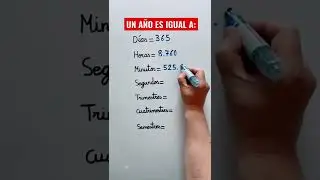 UN AÑO ES IGUAL A:
Días = 365
Horas = 8.760
Minutos = 525.
Segundos =
Trimestres =
Cuatrimestres =
Semestres =